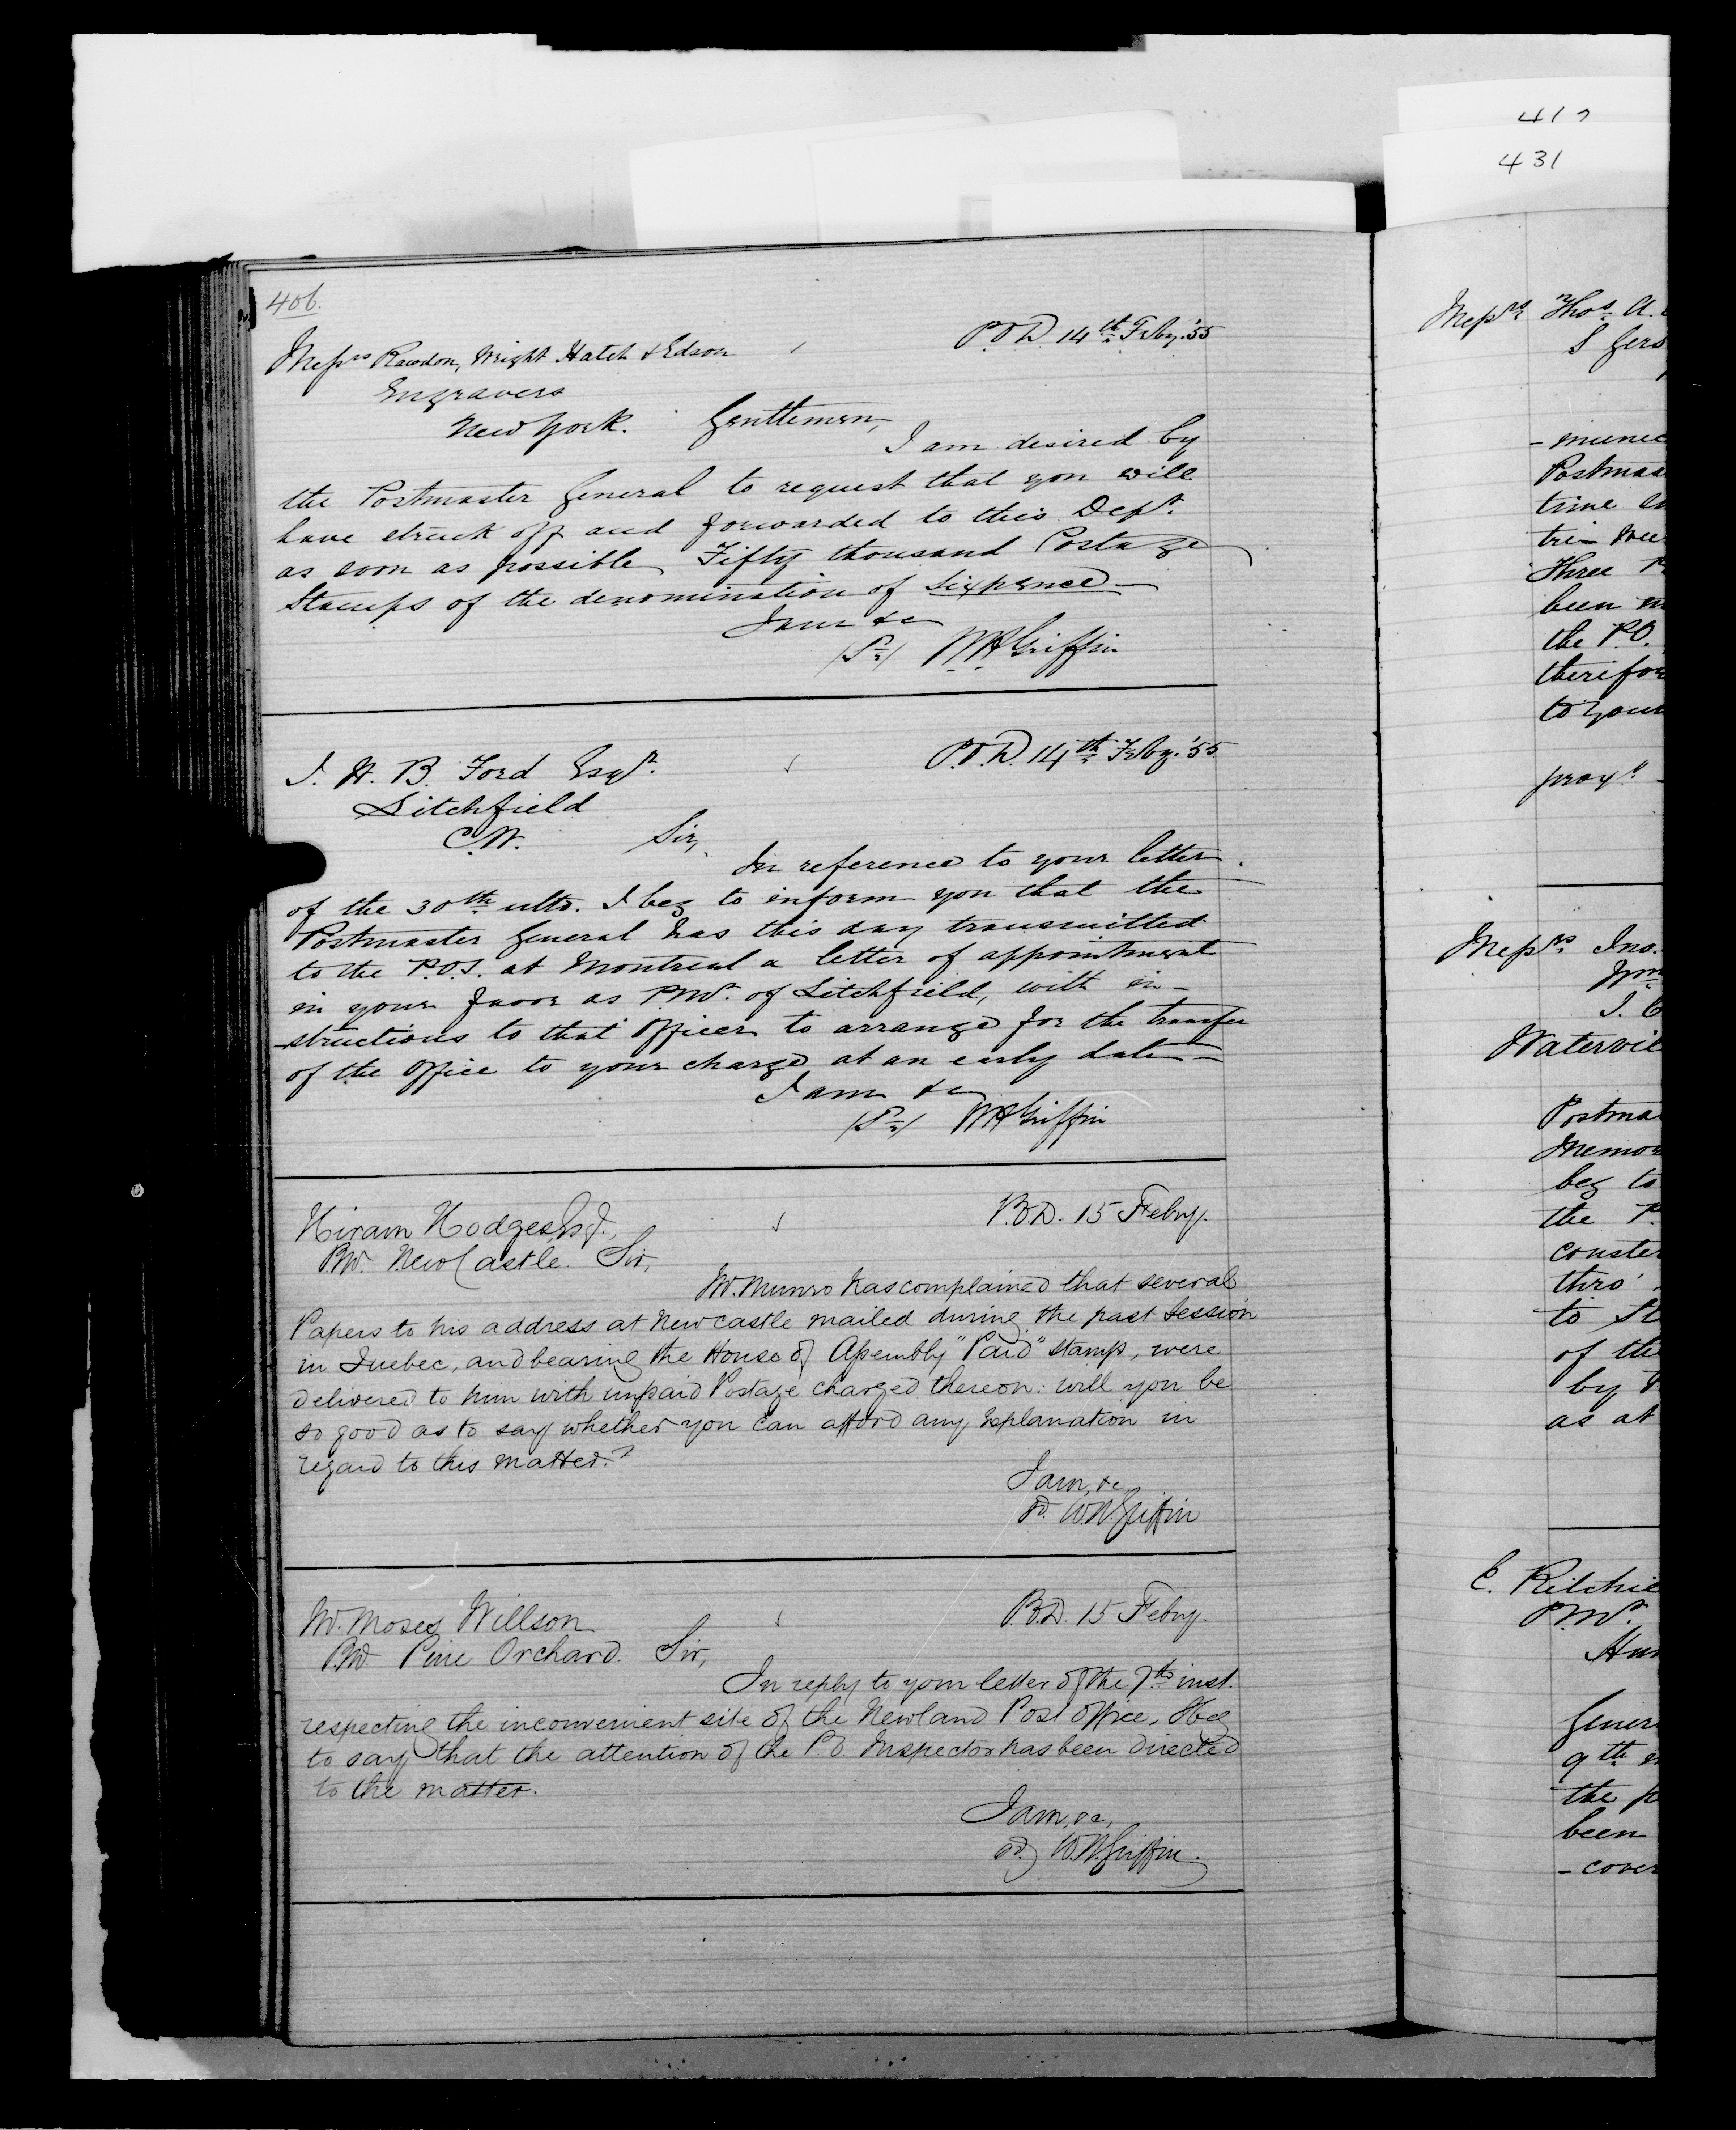 412
431
406.
P.O.D 14th Feby. '55
Messrs Rawdon, Wright Hatch & Edson
Engravers
New York. Gentlemen,
I am desired by
the Postmaster General to request that you will
have struck off and forwarded to this Dept.
as soon as possible Fifty thousand Postage
Stamps of the denomination of Sixpence
I am &c
W H Griffin
P.O.D. 14th Feby. '55
J. H. B. Ford Esqr.
Litchfield
C.W. Sir,
In reference to your letter
of the 30th ulto. I beg to inform you that the
Postmaster General has this day transmitted
to the P.O.I. at Montreal a letter of appointment
in your favor as P.Mr. of Litchfield, with in-
-structions to that Officer to arrange for the transfer
of the Office to your charge at an early date
I am &c
W H Griffin
P.O.D. 15 Feby.
Hiram Hodges Esq.,
P.Mr. NewCastle. Sir,
Mr. Munro has complained that several
Papers to his address at Newcastle mailed during the past Session
in Quebec, and bearing the House of Assembly "Paid" stamp, were
delivered to him with unpaid Postage charged thereon: will you be
so good as to say whether you can afford any explanation in
regard to this matter?
I am, &c,
sd. W.H. Griffin
P.O.D. 15 Feby.
Mr. Moses Willson
P.Mr. Pine Orchard. Sir,
In reply to your letter of the 7th inst.
respecting the inconvenient site of the Newland Post Office, I beg
to say that the attention of the P.O. Inspector has been directed
to the matter.
I am, &c,
sd. W.H. Griffin.
Messrs Thos. A.
S Gers
- munic
Postmas
time
tri-
Three
been
the P.O.
therefor
to your
Messrs Jno.
Wm
J. C
Watervil
Postma
Memor
beg to
the P.
thro'
to St
of the
by
as at
E. Ritchie
P.Mr.
Hun
Gener
9th
the p
been
- cover